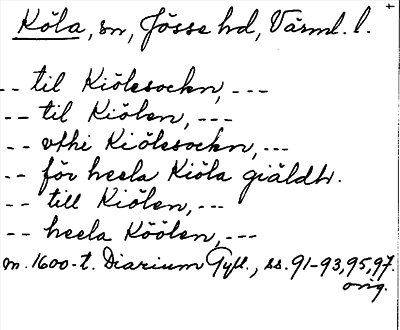 Köla, sn, Jösse hd, Värml. l.
-- til Kiölesockn, ---
-- til Kiölen, ---
-- vthi Kiölesockn, ---
-- för heela Kiöla giäldh.
-- till Kiölen, ---
-- heela Köölen, ---
m. 1600-t. Diarium Gyll., ss. 91-93, 95, 97.
orig.